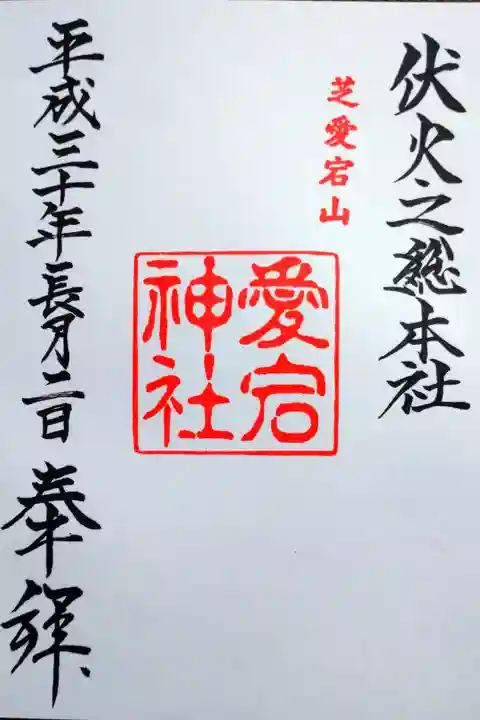 伏火之総本社
芝愛宕山
愛宕
神社
平成三十年長月二日
奉拝